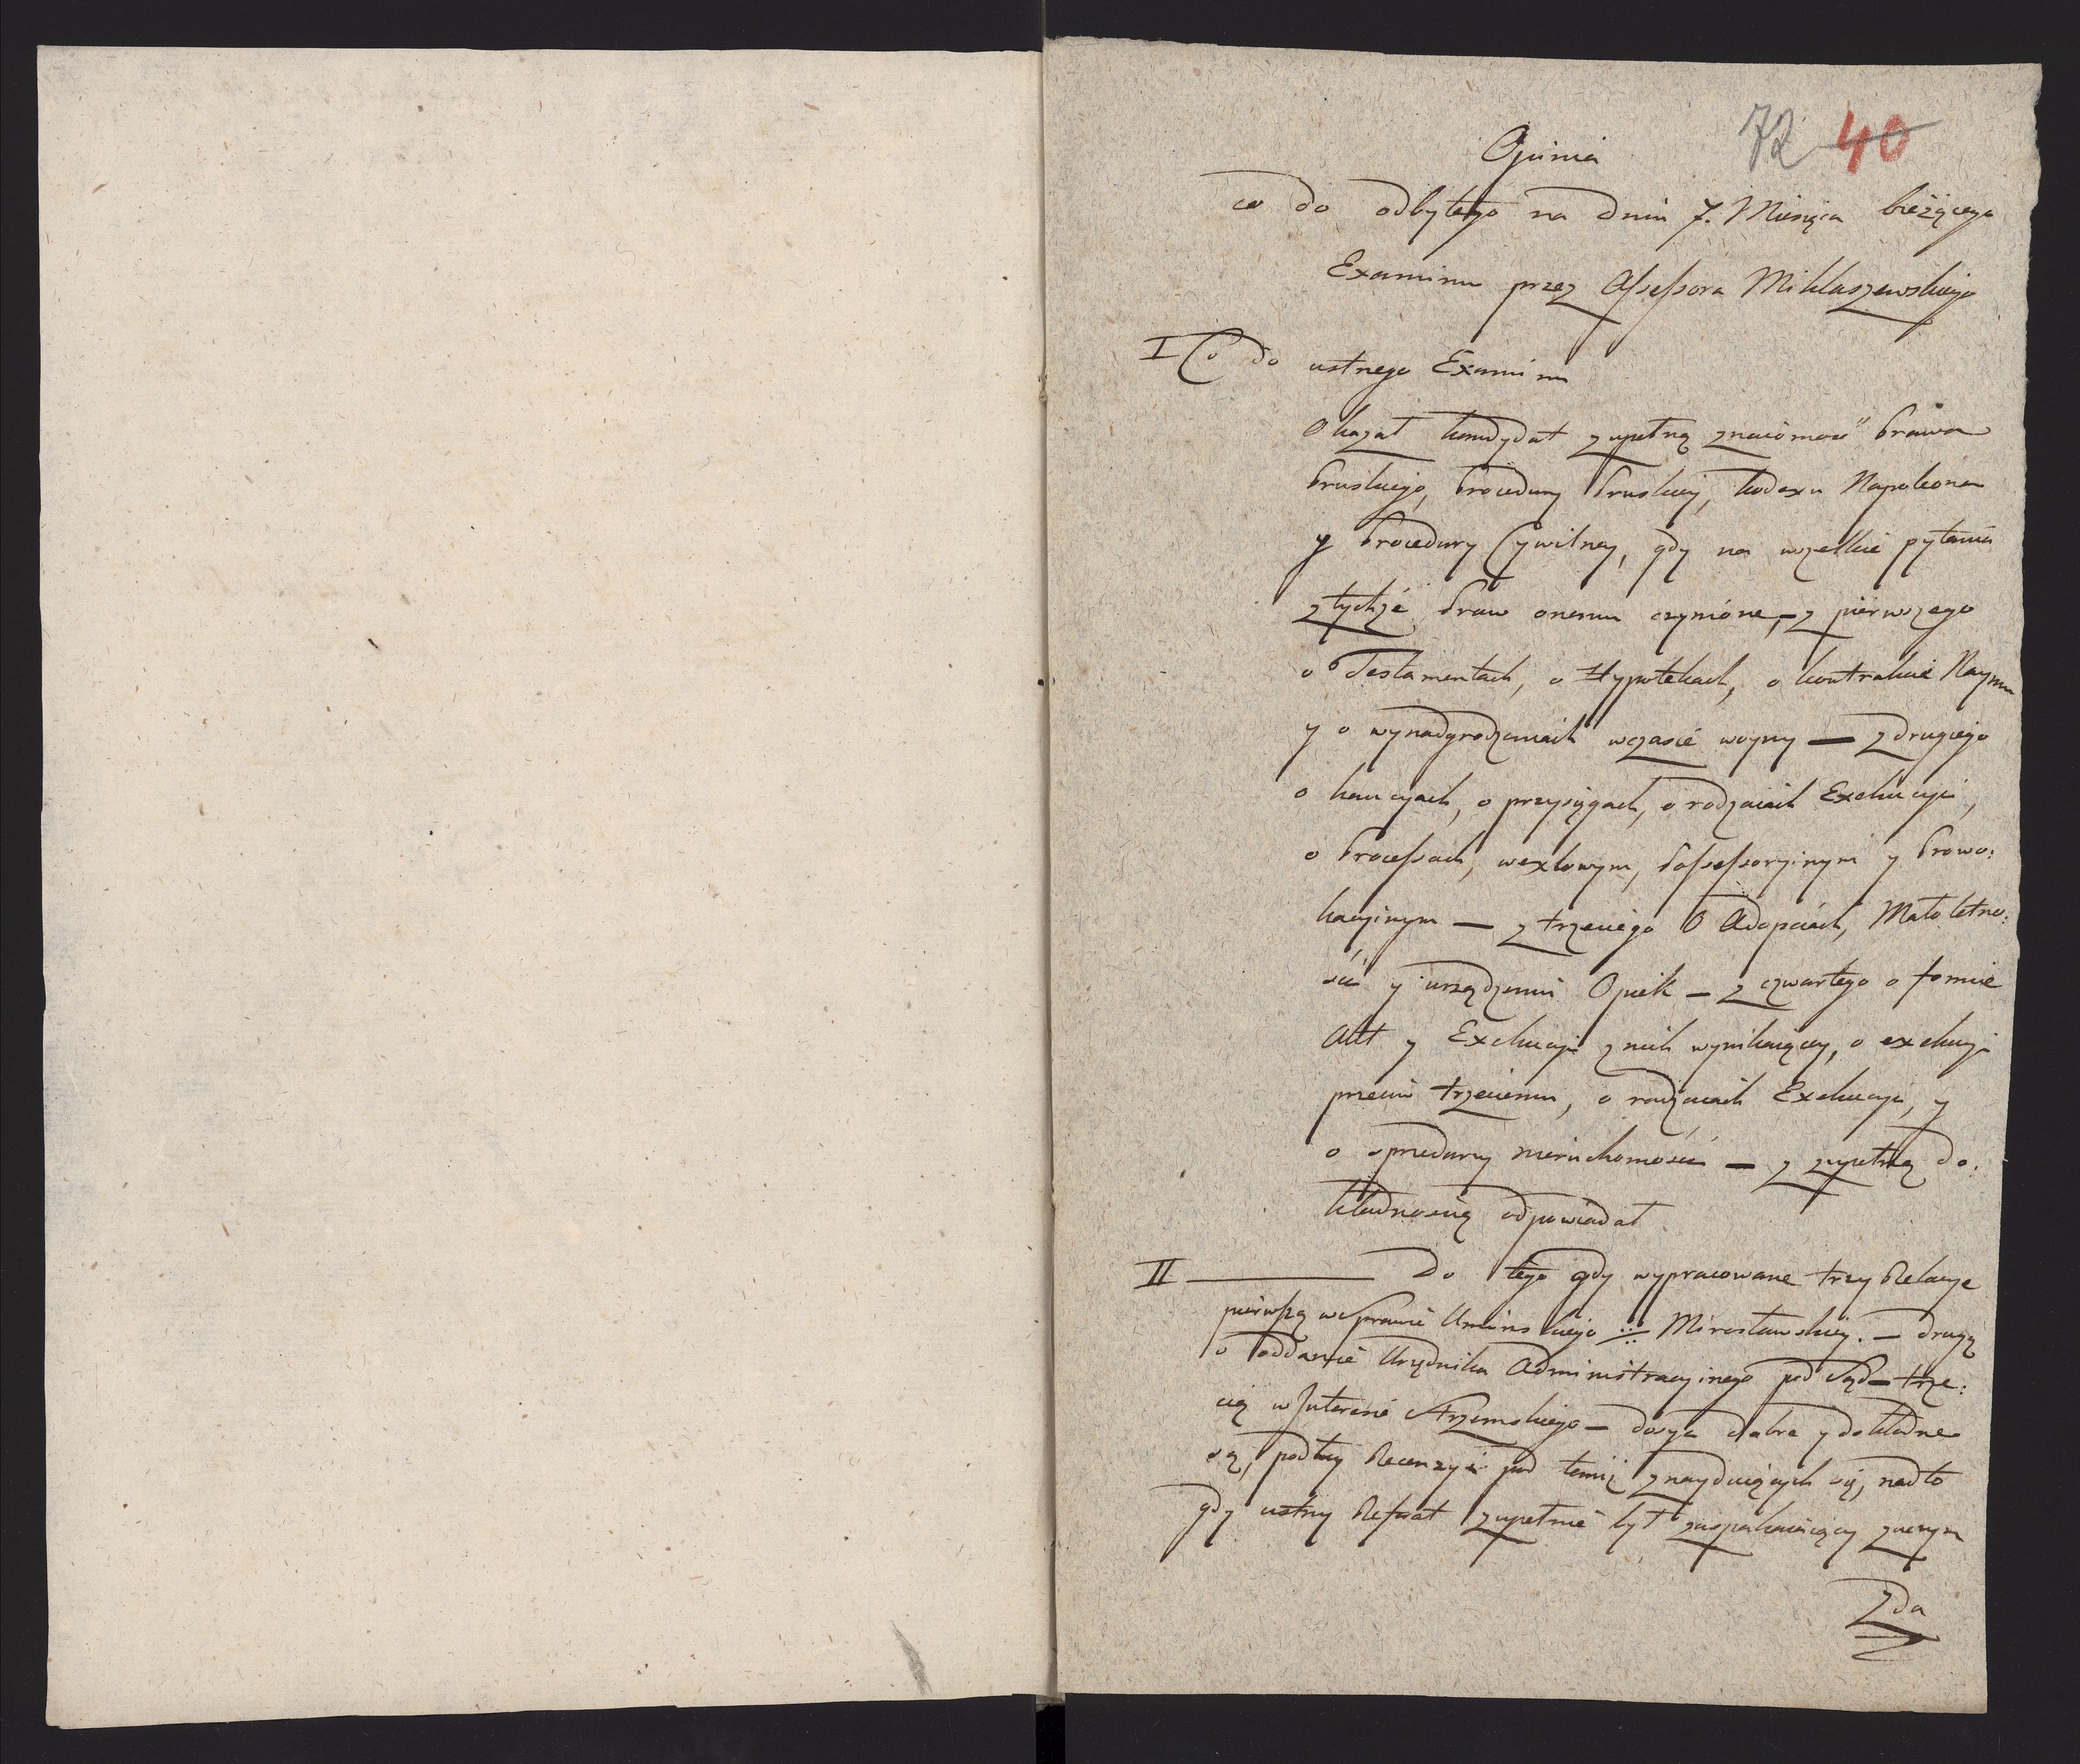 72 40
Opinia
co do odbytego na dniu 7. Miesiąca bieżącego
Examinu przez Assessora Miklaszewskiego
I Co do ustnego Examinu
Okazał kandydat zupełną znaiomość Prawa
Pruskiego, Procedury Pruskiey, kodexu Napoleona
y Procedury Cywilney, gdy na wszelkie pytania
z tychże Praw onemu czynione, – z pierwszego
o Testamentach, o Hypotekach, o kontrakcie Naymu
y o wynadgrodzeniach w czasie woyny — z drugiego
o kaucyach, o przysięgach, o rodzaiach Exekucyi,
o Processach, wexlowym, Possessoryinym y Prowo:
kacyinym — z trzeciego O Adopciach, Małoletno:
ści y urządzeniu Opiek – z czwartego o formie
Akt y Exekucyi z nich wynikaiącey, o exekucyi
przeciw trzeciemu, o rodzaiach Exekucyi, y
o sprzedarzy nieruchomości — z zupełną do:
kładnością odpowiadał
II ——— Do tego gdy wypracowane trzy Relacye
pierwszą w Sprawie Uminskiego ./. Mirosławskiey. – drugą
o oddanie Urzędnika Administracyinego pod Sąd – trze:
cią w Interesie Strzemskiego – dosyć dobre y dokładne
są, podług Recenzyi pod temiż znayduiących się, nadto
gdy ustny Referat zupełnie był zaspakaiaiący zaczym
Zda